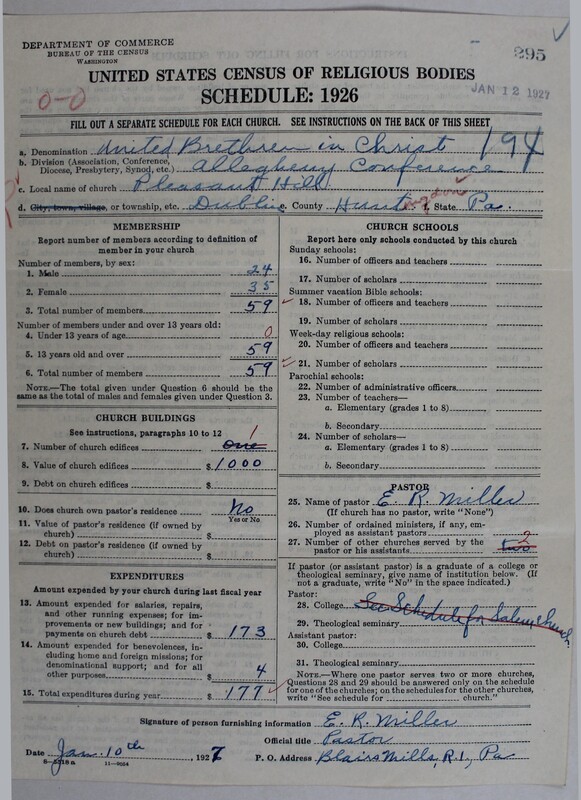 DEPARTMENT OF COMMERCE
BUREAU OF THE CENSUS
WASHINGTON
295
UNITED STATES CENSUS OF RELIGIOUS BODIES
JAN 12 1927
0-0
SCHEDULE: 1926
FILL OUT A SEPARATE SCHEDULE FOR EACH CHURCH. SEE INSTRUCTIONS ON THE BACK OF THIS SHEET
a. Denomination United Brethren in Christ 194
b. Division (Association, Conference, Diocese, Presbytery, Synod, etc.) Allegheny Conference
c. Local name of church Pleasant Hill
d. City, town, village, or township, etc. Dublin e. County Huntingdon f. State Pa.
MEMBERSHIP
Report number of members according to definition of
member in your church
Number of members, by sex:
1. Male 24
2. Female 35
3. Total number of members 59
Number of members under and over 13 years old:
4. Under 13 years of age 0
5. 13 years old and over 59
6. Total number of members 59
NOTE.—The total given under Question 6 should be
same as the total of males and females given under Question 3.
CHURCH BUILDINGS
See instructions, paragraphs 10 to 12
7. Number of church edifices One 1
8. Value of church edifices $ 1000
9. Debt on church edifices $
10. Does church own pastor's residence? No
Yes or No
11. Value of pastor's residence (if owned by
church) $
12. Debt on pastor's residence (if owned by
church) $
EXPENDITURES
Amount expended by your church during last fiscal year
13. Amount expended for salaries, repairs,
and other running expenses; for im-
provements or new buildings; and for
payments on church debt $ 173
14. Amount expended for benevolences, in-
cluding home and foreign missions; for
denominational support; and for all
other purposes $ 4
15. Total expenditures during year $ 177
CHURCH SCHOOLS
Report here only schools conducted by this church
Sunday schools:
16. Number of officers and teachers
17. Number of scholars
Summer vacation Bible schools:
18. Number of officers and teachers
19. Number of scholars
Week-day religious schools:
20. Number of officers and teachers
21. Number of scholars
Parochial schools:
22. Number of administrative officers
23. Number of teachers—
a. Elementary (grades 1 to 8)
b. Secondary
24. Number of scholars—
a. Elementary (grades 1 to 8)
b. Secondary
PASTOR
25. Name of pastor E. R. Miller
(If church has no pastor, write "None")
26. Number of ordained ministers, if any, em-
ployed as assistant pastors
27. Number of other churches served by the
pastor or his assistants two 2
If pastor (or assistant pastor) is a graduate of a college or
theological seminary, give name of institution below. (If
not a graduate, write "not" in the space indicated.)
Pastor:
28. College See Schedule for Salem Church
29. Theological seminary
Assistant pastor:
30. College
31. Theological seminary
NOTE.—Where one pastor serves two or more churches,
Questions 28 and 29 should be answered only on the schedule
for one of the churches; on the schedules for the other churches,
write "See schedule for church."
Signature of person furnishing information E. R. Miller
Official title Pastor
Date Jan. 10th, 1927 P. O. Address Blairs Mills, R.1., Pa
11—9024